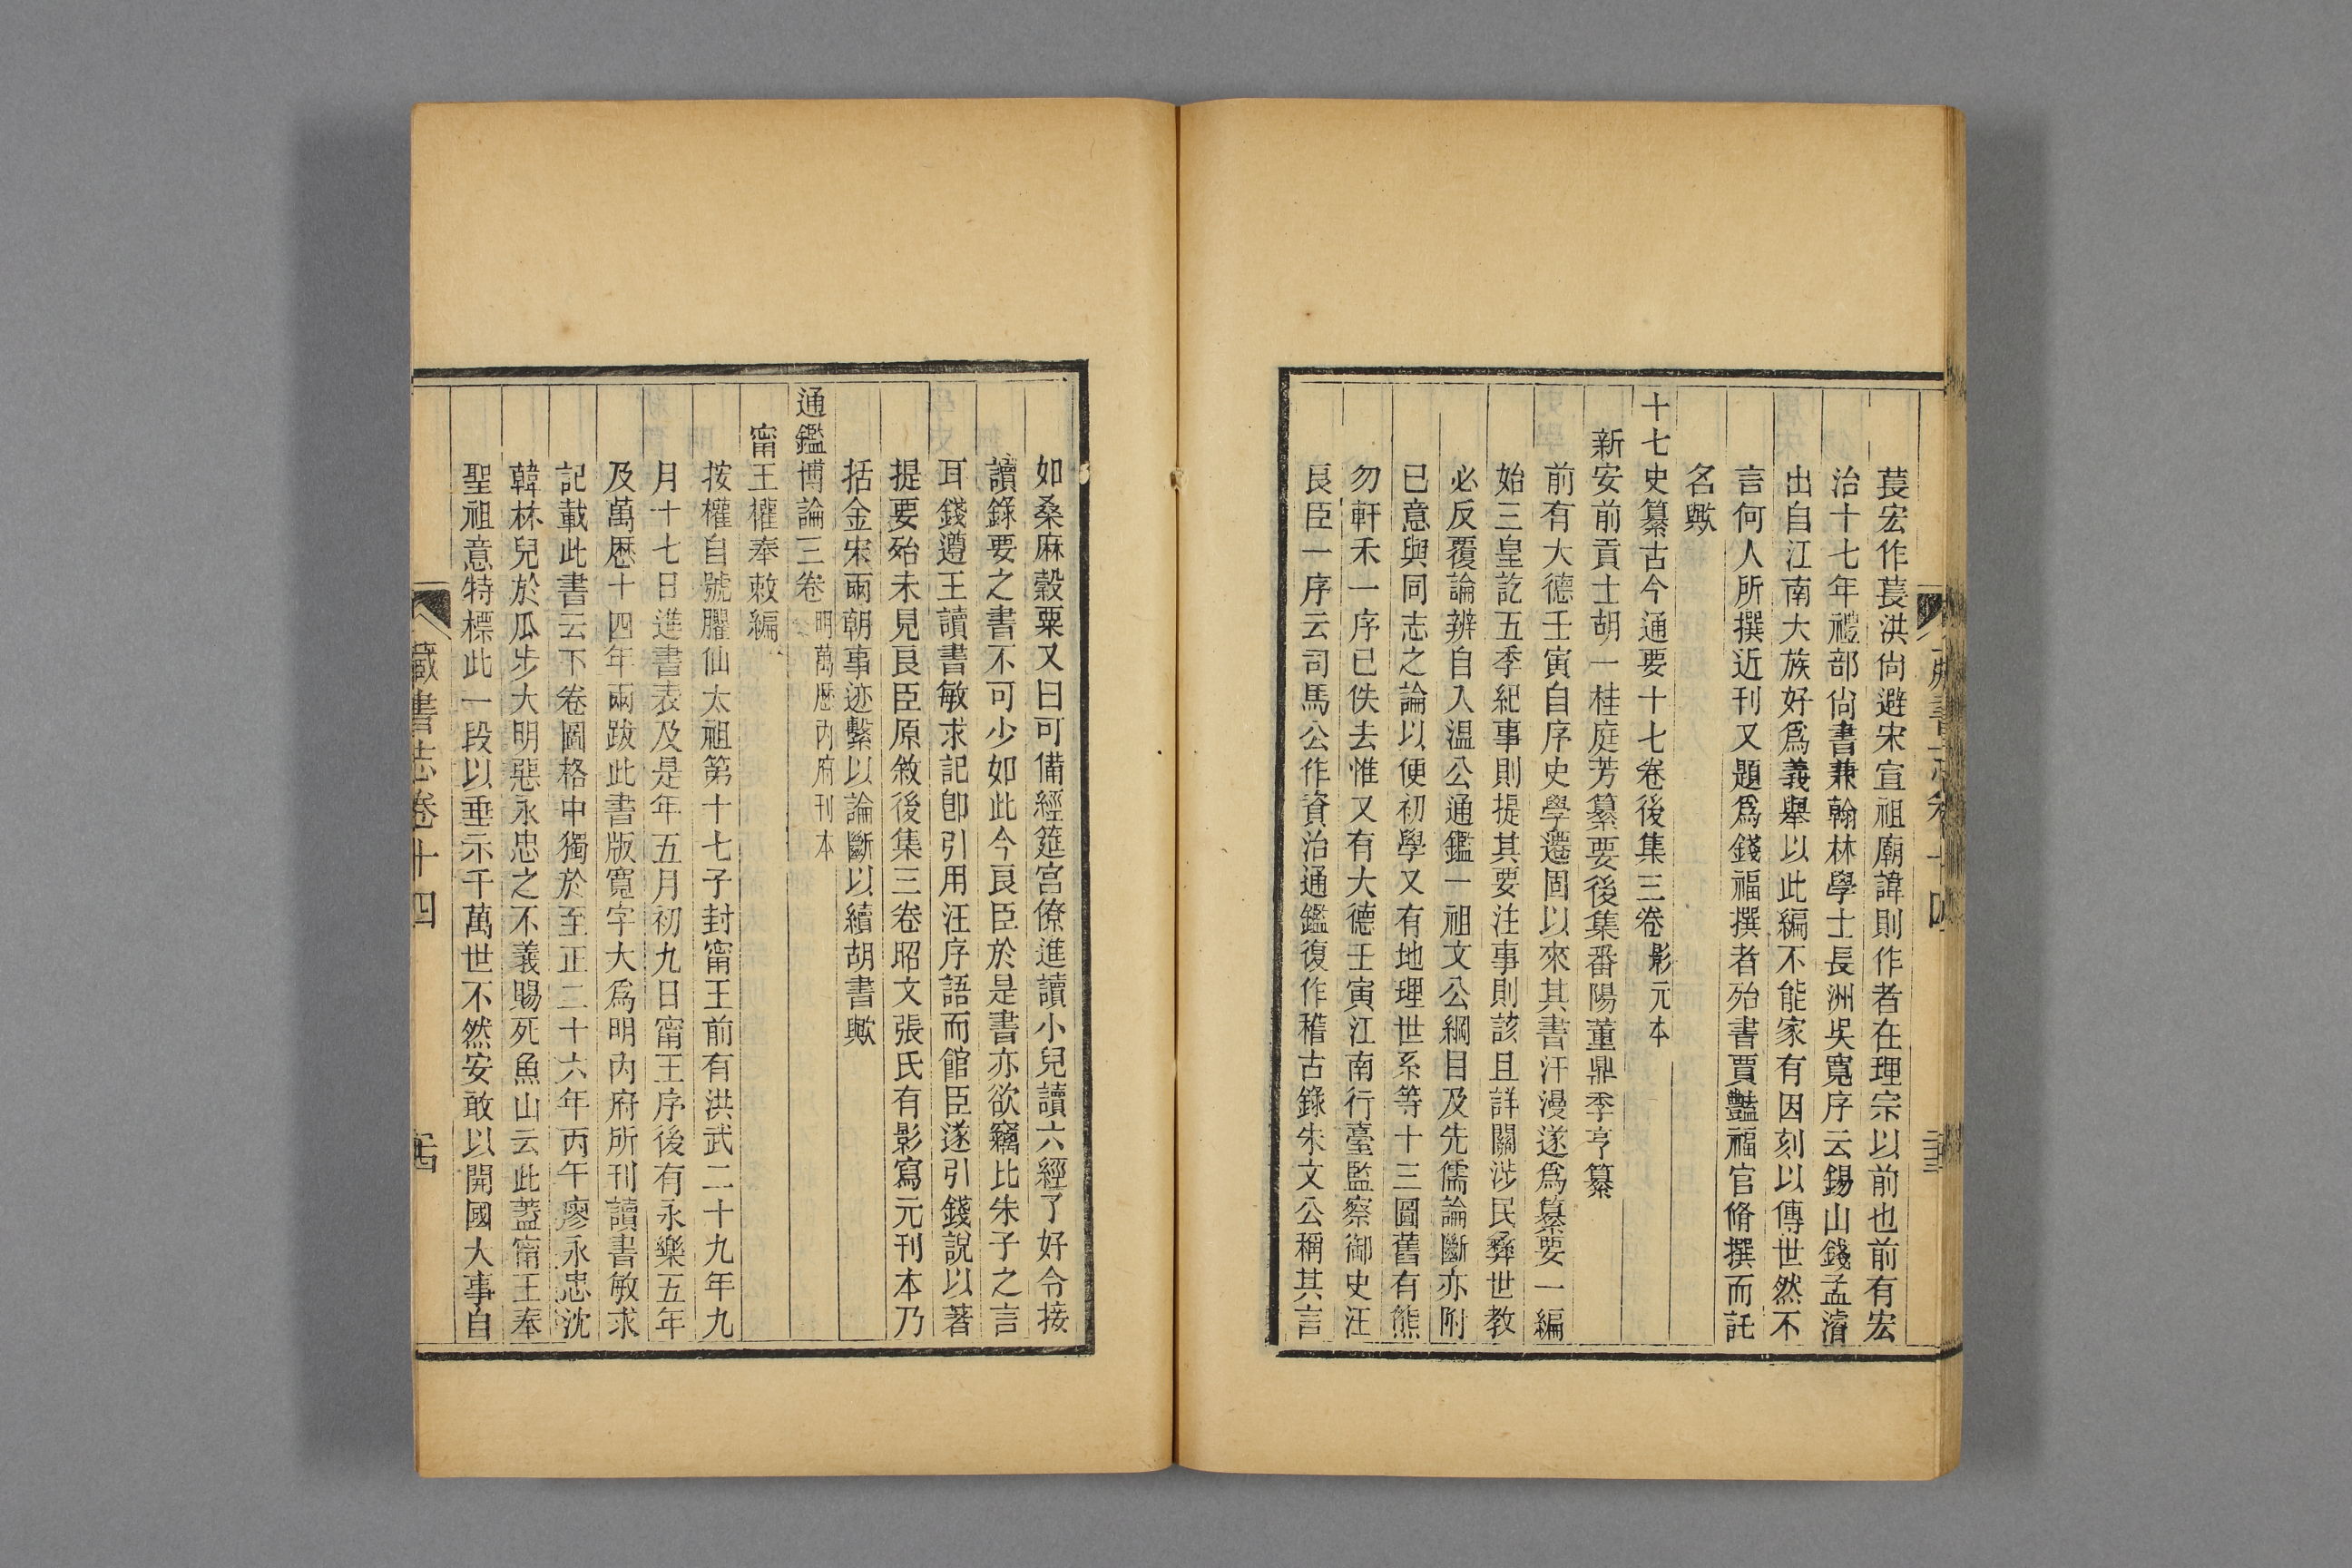 萇宏作萇洪尙避宋宣祖廟諱則作者在理宗以前也前有宏
治十七年禮部尙書兼翰林學士長洲吳寬序云錫山錢孟濬
出自江南大族好爲義舉以此編不能家有因刻以傳世然不
言何人所撰近刊又題爲錢福撰者殆書賈豔福官脩撰而託
名歟
十七史纂古今通要十七卷後集三卷影元本
新安前貢士胡一桂庭芳纂要後集番陽董鼎季亨纂
前有大德壬寅自序史學遷固以來其書汗漫遂爲纂要一編
始三皇訖五季紀事則提其要注事則該且詳關涉民彝世教
必反覆論辨自入温公通鑑一祖文公綱目及先儒論斷亦附
已意與同志之論以便初學又有地理世系等十三圖舊有熊
勿軒禾一序已佚去惟又有大德壬寅江南行臺監察御史汪
良臣一序云司馬公作資治通鑑復作稽古錄朱文公稱其言
如桑麻榖粟又曰可備經筵宮僚進讀小兒讀六經了好令接
讀錄要之書不可少如此今良臣於是書亦欲竊比朱子之言
耳錢遵王讀書敏求記卽引用汪序語而館臣遂引錢說以著
提要殆未見良臣原敘後集三卷昭文張氏有影寫元刊本乃
括金宋兩朝事迹繫以論斷以續胡書歟
通鑑博論三卷明萬歷內府刊本
甯王權奉敕編
按權自號臞仙太祖第十七子封甯王前有洪武二十九年九
月十七日進書表及是年五月初九日甯王序後有永樂五年
及萬歷十四年兩跋此書版寬字大爲明內府所刊讀書敏求
記載此書云下卷圖格中獨於至正二十六年丙午廖永忠沈
韓林兒於瓜步大明惡永忠之不義賜死魚山云此蓋甯王奉
聖祖意特標此一段以垂示千萬世不然安敢以開國大事自
藏書志卷十四